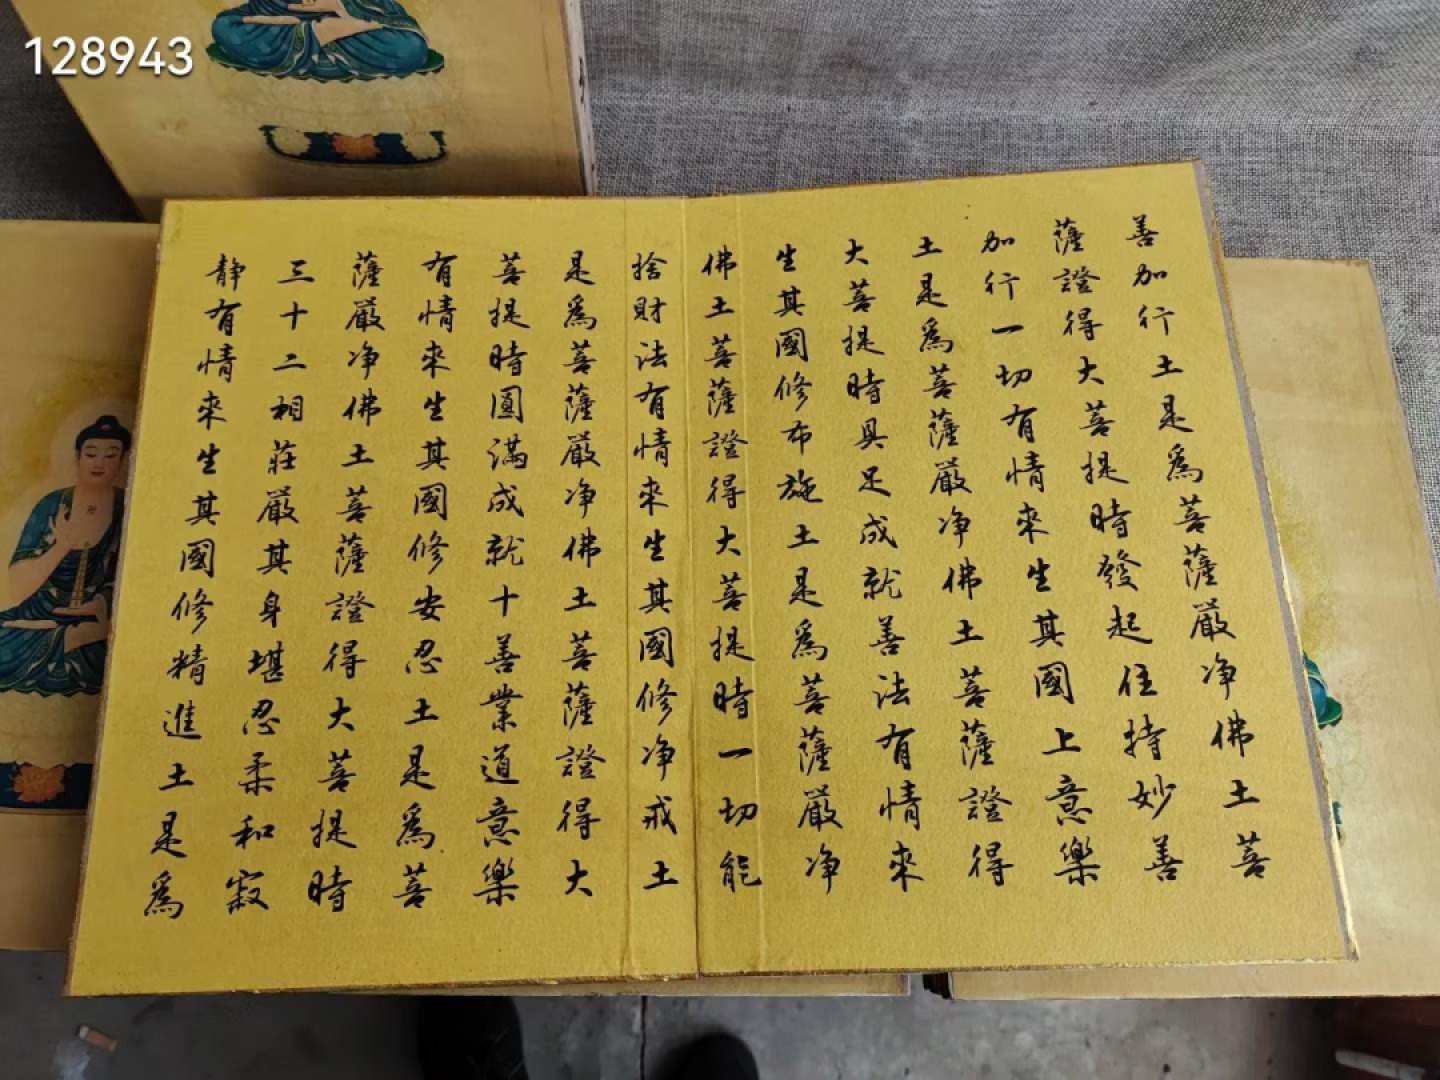 128943
善加行土是為菩薩嚴净佛土菩
薩證得大菩提時發起住持妙善
加行一切有情來生其國上意樂
土是為菩薩嚴净佛土菩薩證得
大菩提時具足成就善法有情來
生其國修布施土是為菩薩嚴净
佛土菩薩證得大菩提時一切能
捨財法有情來生其國修净戒土
是為菩薩嚴净佛土菩薩證得大
菩提時圓滿成就十善業道意樂
有情來生其國修安忍土是為菩
薩嚴净佛土菩薩證得大菩提時
三十二相莊嚴其身堪忍柔和寂
靜有情來生其國修精進土是為